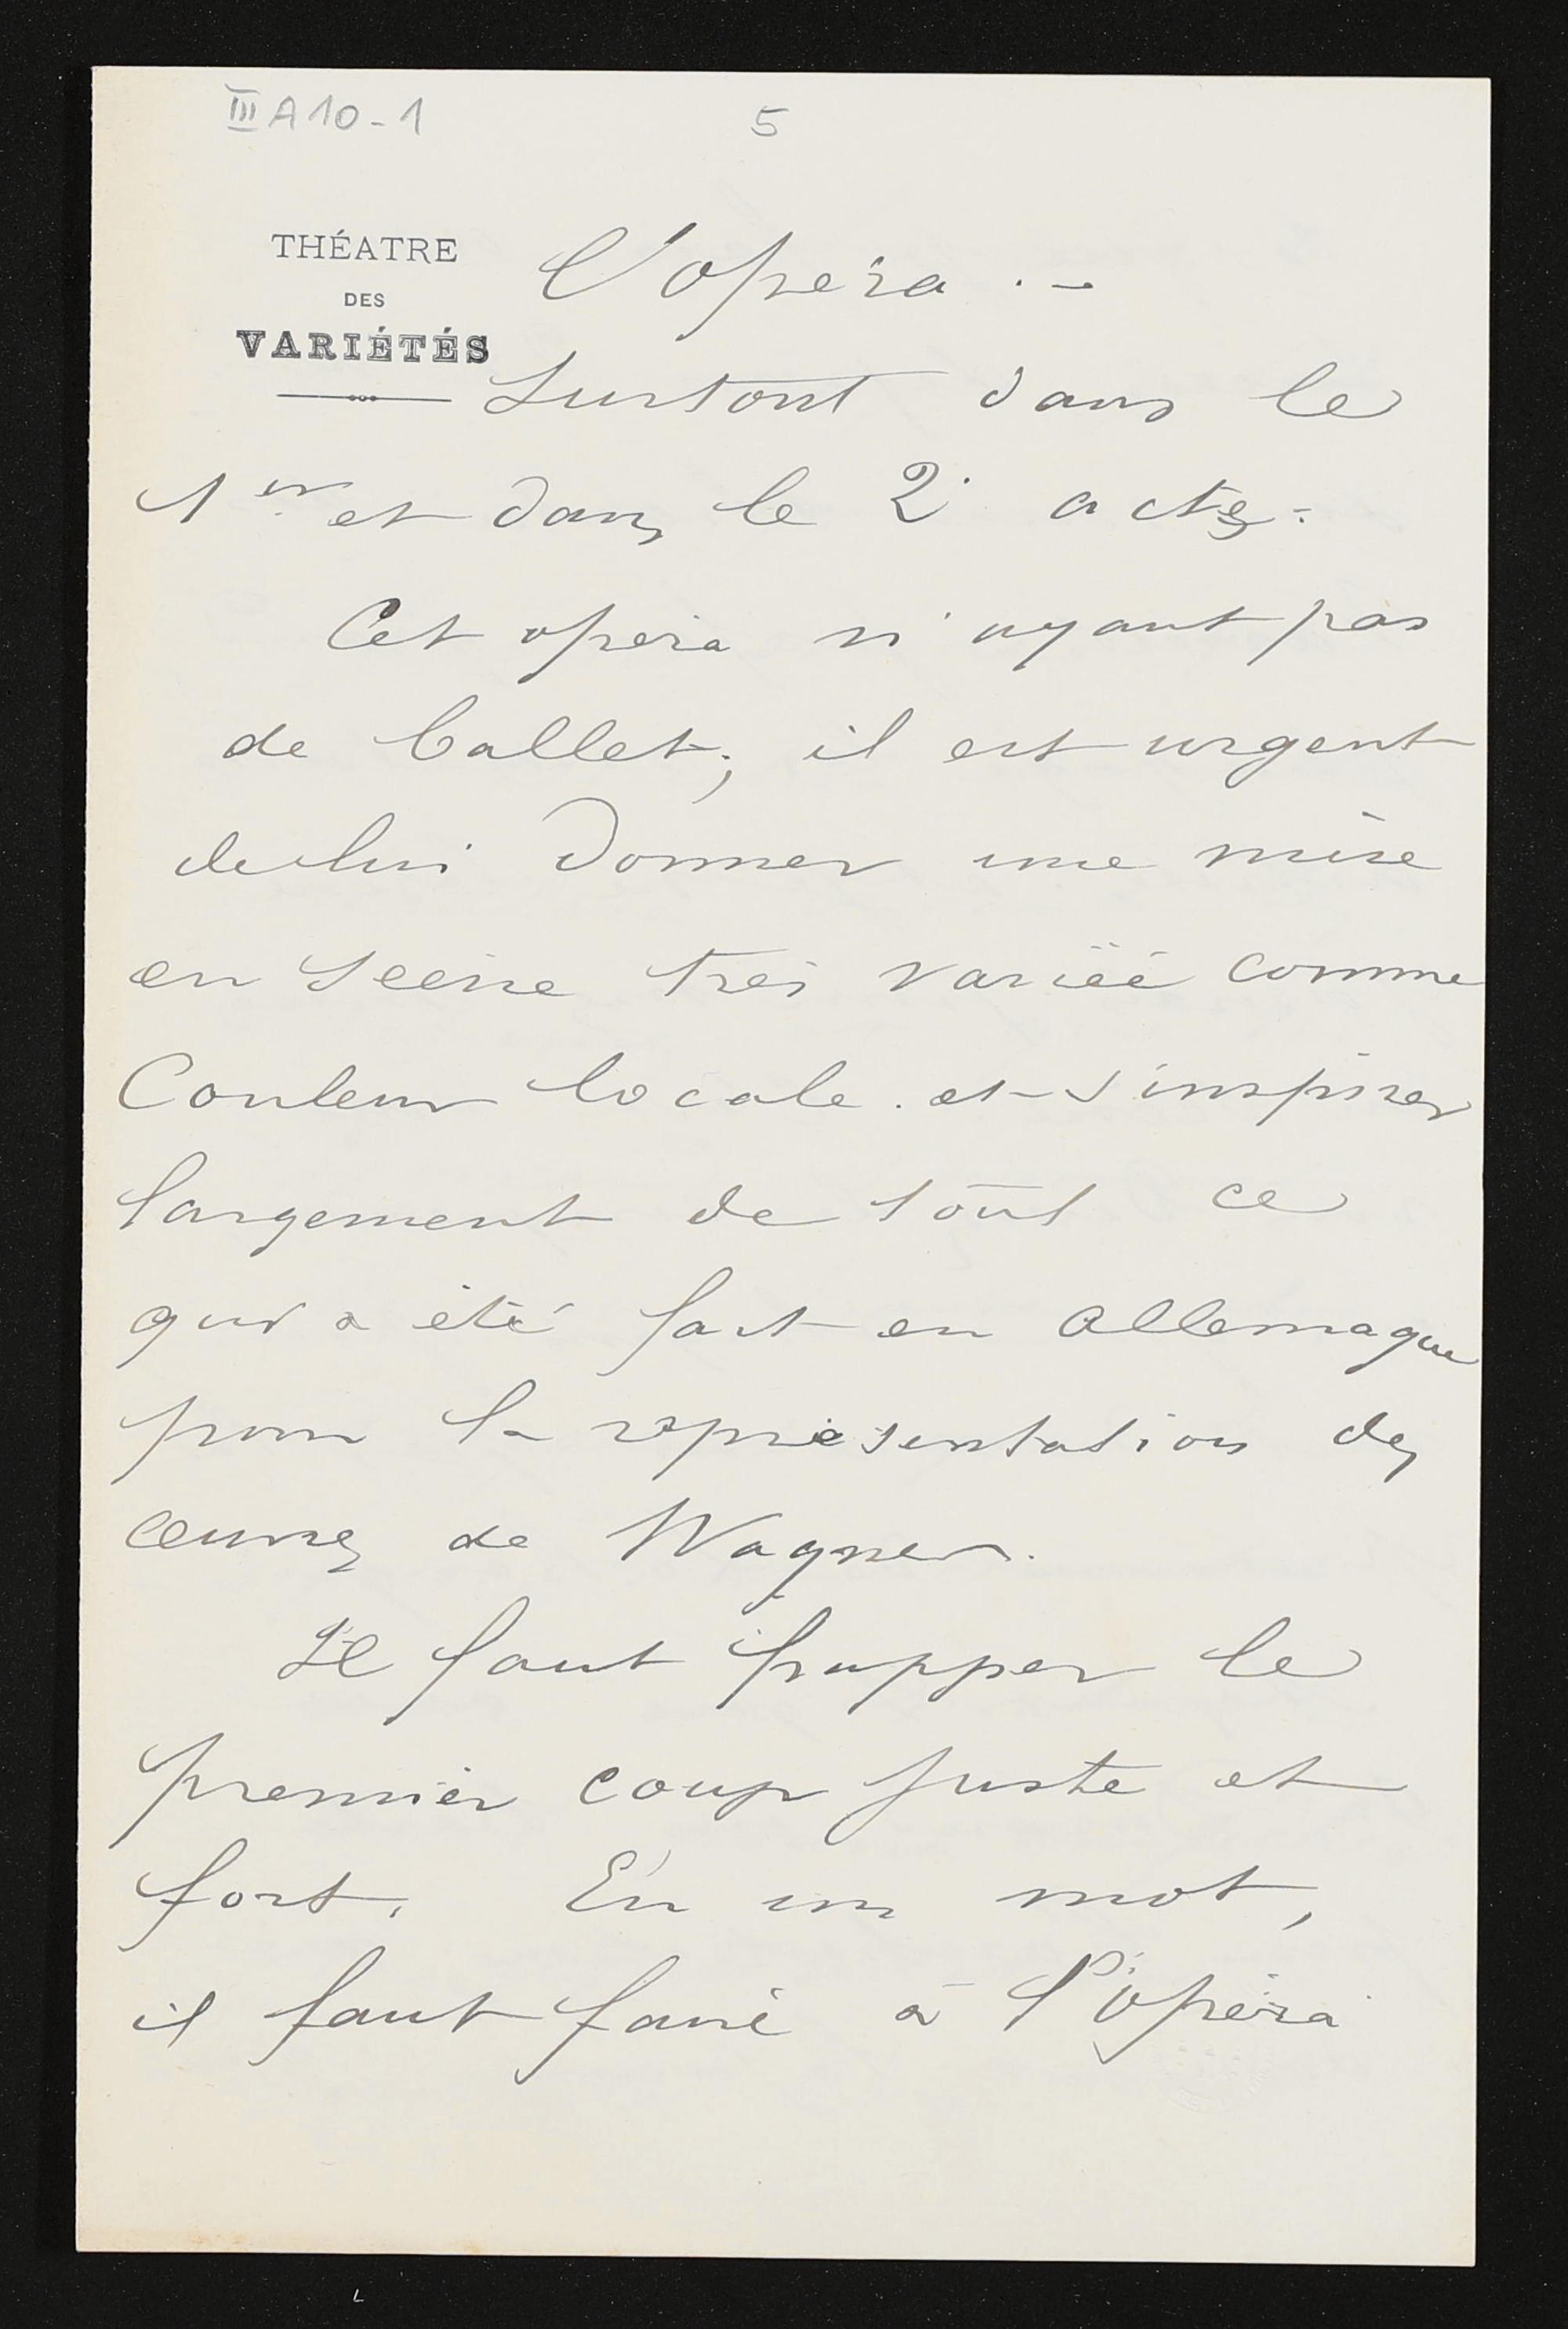 III A 10-1
5
THÉATRE
DES
VARIÉTÉS
l'opera . -
surtout dans le
1er et dans le 2e actes.
Cet opéra n'ayant pas
de ballet, il est urgent
de lui donner une mise
en scène très variée comme
Couleur locale. et s'inspirer
largement de tout ce
qui a été fait en Allemagne
pour la représentation des
œuvres de Wagner.
Il faut frapper le
premier coup juste et
fort. En un mot,
il faut faire à l'opéra